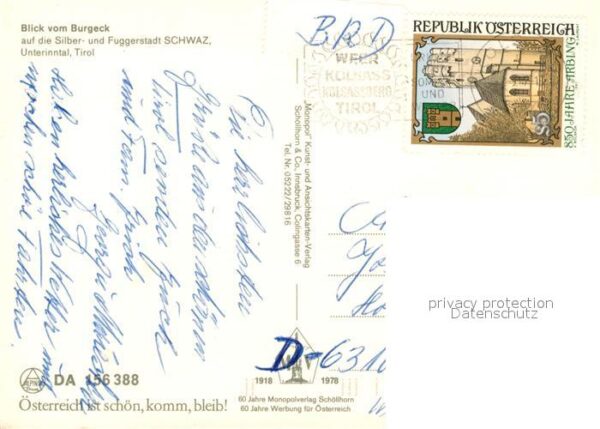 Blick vom Burgeck
auf die Silber- und Fuggerstadt SCHWAZ,
Unterinntal, Tirol
BRD
WEER
KOLSASS
KOLSASSBERG
TIROL
UND
REPUBLIK ÖSTERREICH
850 JAHRE ARBING
S5
Die herzlichsten
Grüße aus dem schönen
Tirol senden
und Fam.
haben herrliches Wetter und
machen schöne
Monopol® Kunst- und Ansichtskarten-Verlag
Schöllhorn & Co., Innsbruck, Colingasse 6
Tel. Nr. 05222/29816
D-631
privacy protection
Datenschutz
DA 156 388
1918 1978
Österreich ist schön, komm, bleib!
60 Jahre Monopolverlag Schöllhorn
60 Jahre Werbung für Österreich